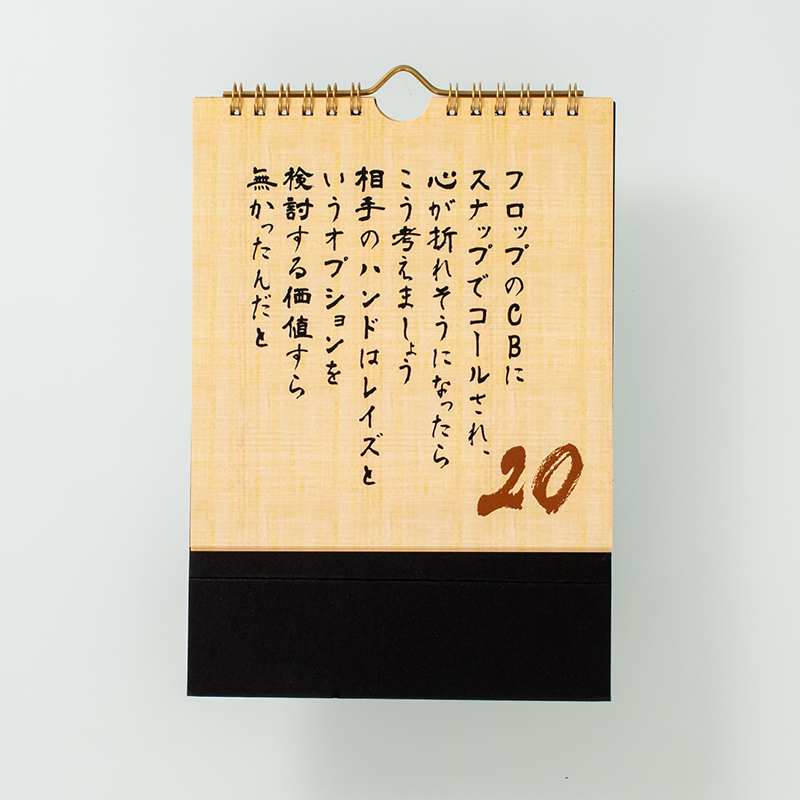 フロップのCBに
スナップでコールされ、
心が折れそうになったら
こう考えましょう
相手のハンドはレイズと
いうオプションを
検討する価値すら
無かったんだと
20